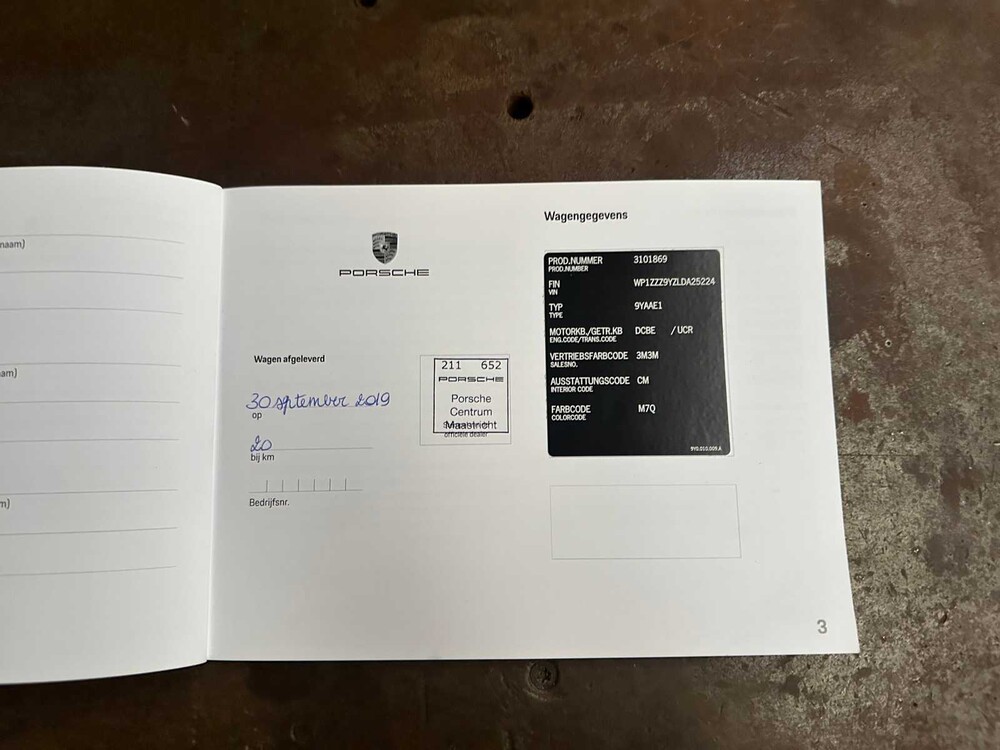 naam)
am)
m)
PORSCHE
Wagen afgeleverd
30 september 2019
op
20
bij km
Bedrijfsnr.
211 652
PORSCHE
Porsche
Centrum
Maastricht
officiële dealer
Wagengegevens
PROD.NUMMER 3101869
PROD.NUMBER
FIN WP1ZZZ9YZLDA25224
VIN
TYP 9YAAE1
TYPE
MOTORKB./GETR.KB DCBE / UCR
ENG.CODE/TRANS.CODE
VERTRIEBSFARBCODE 3M3M
SALESNO.
AUSSTATTUNGSCODE CM
INTERIOR CODE
FARBCODE M7Q
COLORCODE
9Y0.010.009.A
3